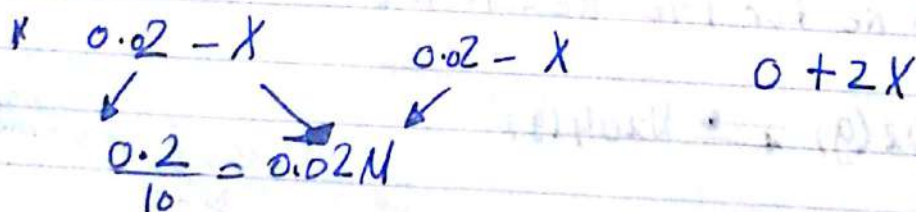 0.02 - X 0.02 - X 0 + 2X
0.2/10 = 0.02M